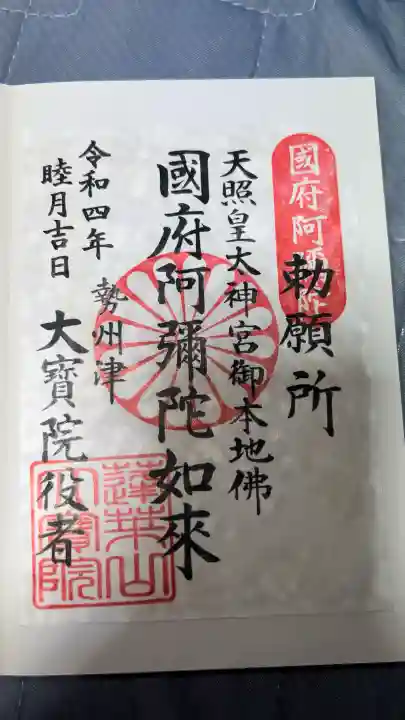 國府阿彌陀
勅願所
天照皇太神宮御本地佛
國府阿彌陀如來
勢州津
大寶院役者
令和四年
睦月吉日
蓮華山
大寶院